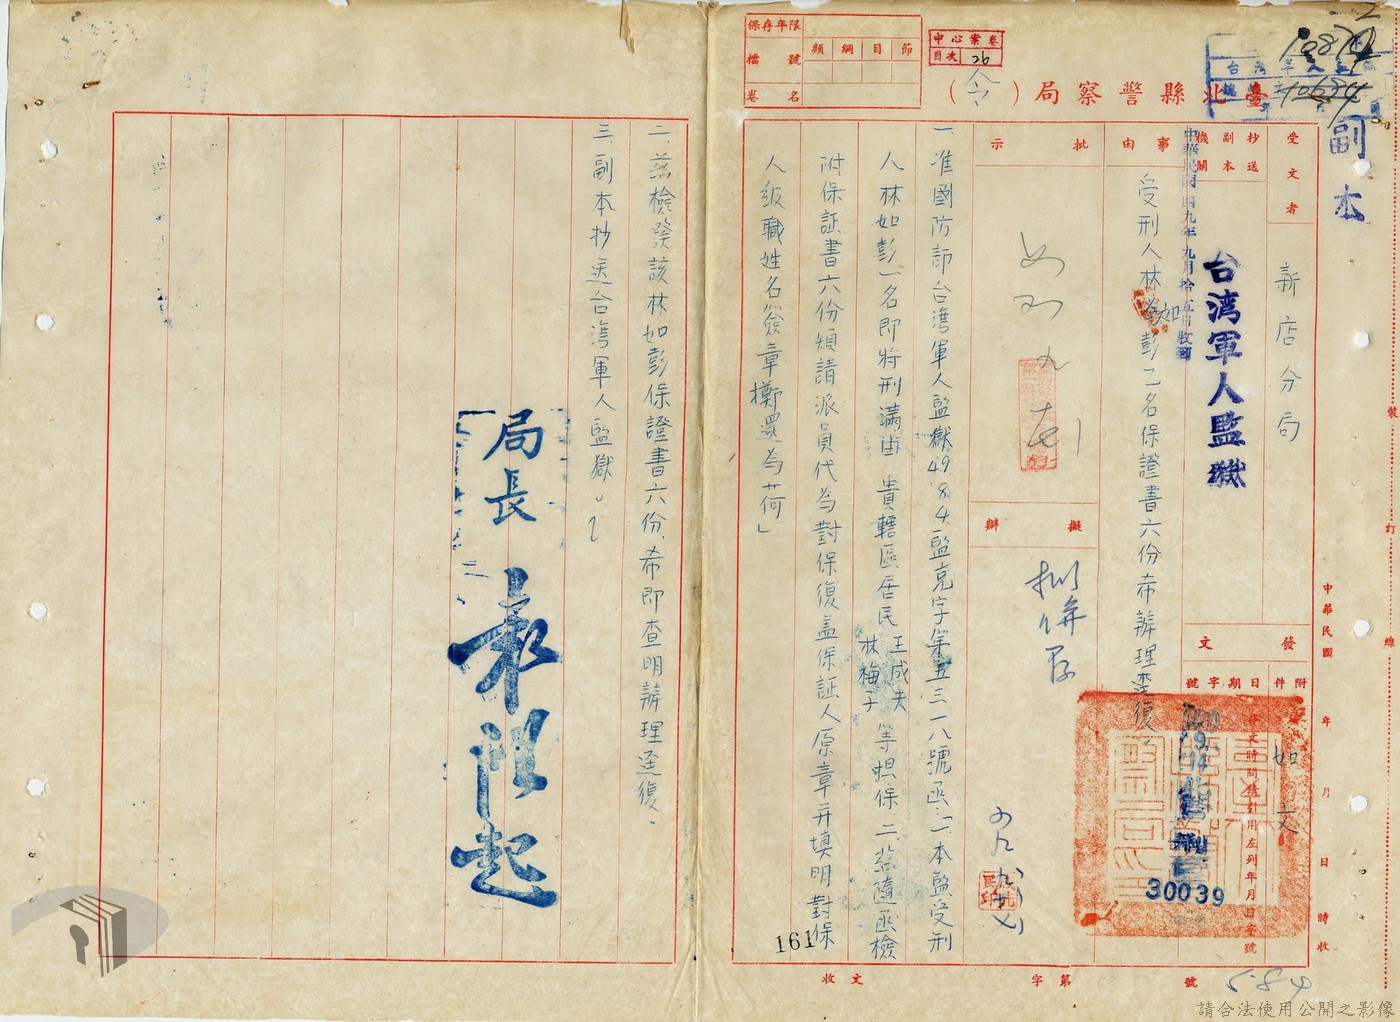 副本
保存年限
檔號
卷名
類 綱 目 節
中心案卷
目次 26
臺北縣警察局(令)
受文者
新店分局
抄送副本機關
台湾軍人監獄
中華民國四九年九月拾五日收到
事由
受刑人林如彭乙名保證書六份希辦理逕復
批示
擬辦
發文
附件
如文
日期
字號
30039
發文時間請引用左列年月日字號
一、准國防部台湾軍人監獄49.8.4.監克字第五三一八號函：「一本監受刑
人林如彭一名即將刑滿由 貴轄區居民王成夫林梅子等担保二茲隨函檢
附保証書六份煩請派員代為對保復蓋保証人原章并填明對保
人級職姓名簽章擲還為荷」
二、茲檢發該林如彭保證書六份、希即查明辦理逕復、
三、副本抄送台湾軍人監獄。
局長
161
收文
字第
號
584
中華民國 年 月 日 時收
裝
訂
線
請合法使用公開之影像